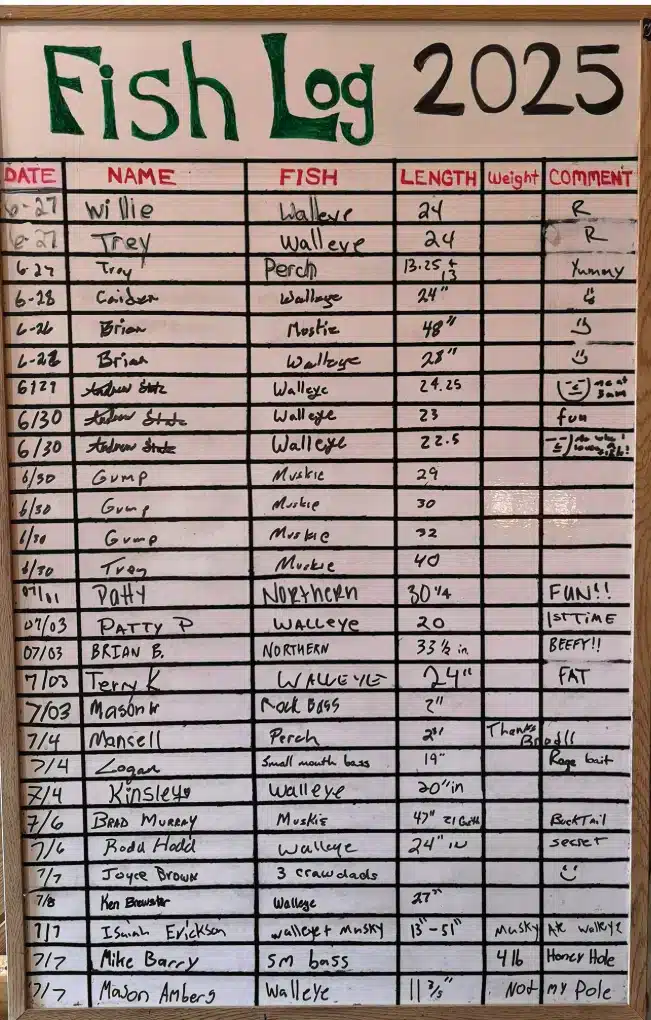 Fish Log 2025
DATE NAME FISH LENGTH Weight COMMENT
6-27 Willie Walleye 24 R
6-27 Trey Walleye 24 R
6-27 Trey Perch 13.25 + 13 Yummy
6-28 Caiden Walleye 24"
6-26 Brian Mostie 48"
6-28 Brian Walleye 28"
6/29 Andrew Walleye 24.25 3am
6/30 Andrew Walleye 23 fun
6/30 Andrew Walleye 22.5
6/30 Gump Muskie 29
6/30 Gump Muskie 30
6/30 Gump Muskie 32
6/30 Trey Muskie 40
07/01 Patty Northern 30 1/4 FUN!!
07/03 PATTY P WALLEYE 20 1ST TIME
07/03 BRIAN B. NORTHERN 33 1/2 in BEEFY!!
7/03 Terry K WALLEYE 24" FAT
7/03 Mason Rock Bass 2"
7/4 Mansell Perch Thanks Brad!!
7/4 Logan Small mouth bass 19" Rage bait
7/4 Kinsley Walleye 20"in
7/6 BRAD MURRAY MUSKIE 47" 21 Girth BUCKTAIL
7/6 Rodd Hodd Walleye 24" IN secret
7/7 Joyce Brown 3 crawdads
7/8 Ken Brewster Walleye 27"
7/7 Isaiah Erickson walleye + Musky 13"-51" Musky Ate walleye
7/7 Mike Barry SM bass 4 lb Honey Hole
7/7 Mason Amberg Walleye 11 Not my Pole